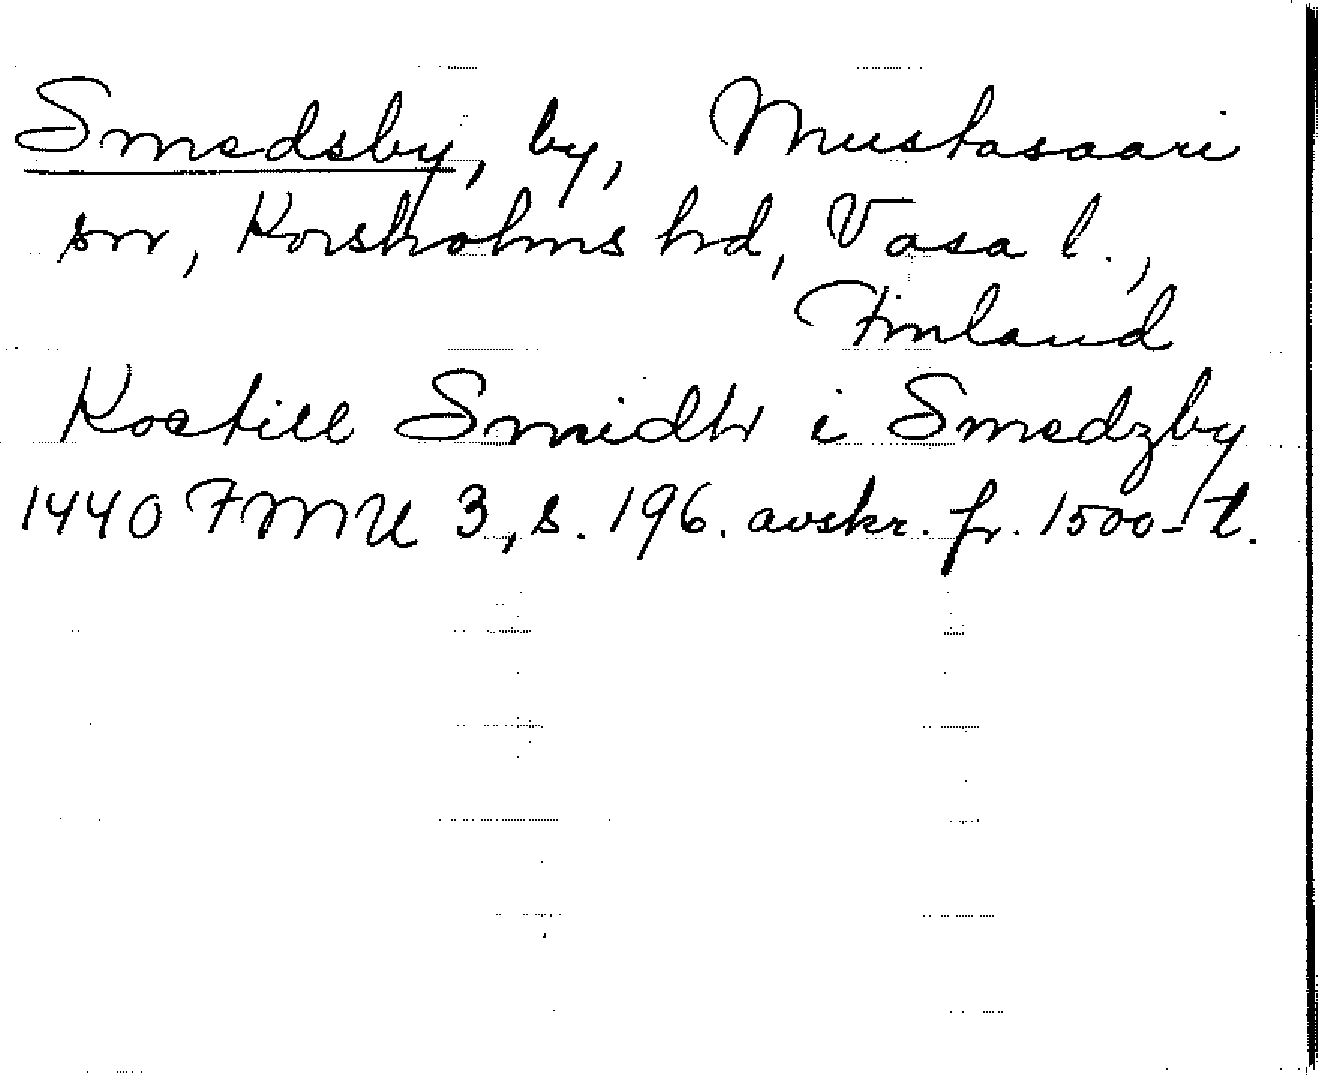 Smedsby, by, Mustasaari
sn, Korsholms hd, Vasa l.,
Finland
Kostill Smidh i Smedzby
1440 FMU 3, s. 196. avskr. fr. 1500-t.